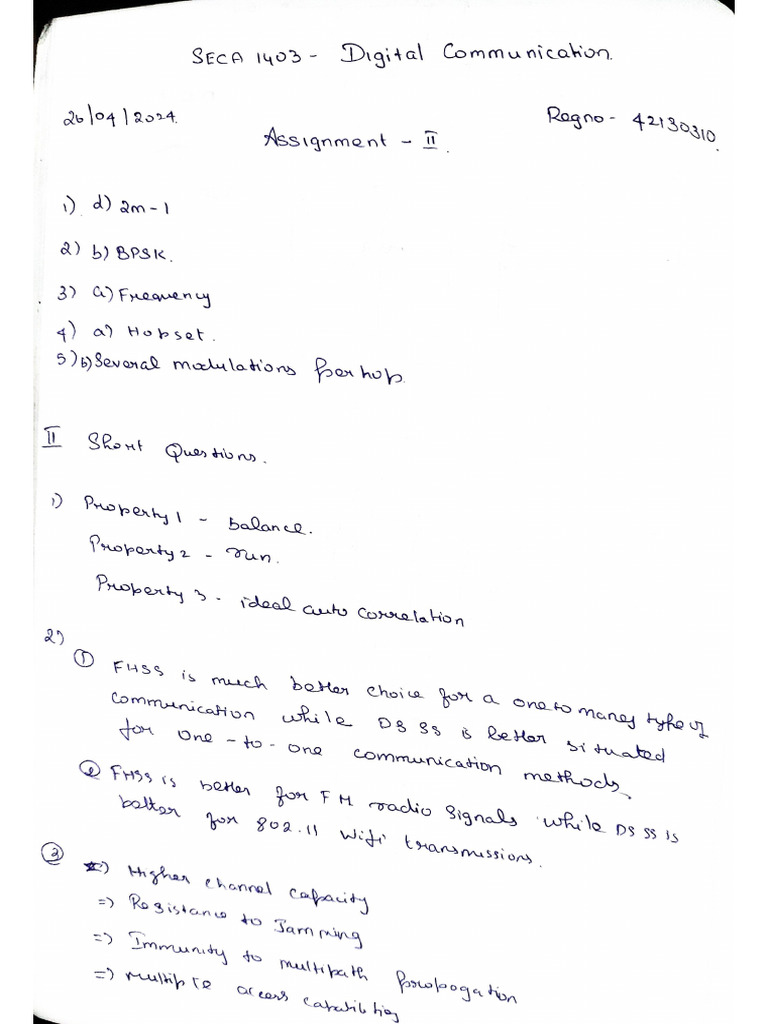 SECA 1403 - Digital Communication.
26/04/2024.
Regno - 42130310.
Assignment - II.
1) d) 2m-1
2) b) BPSK.
3) a) Frequency
4) a) Hopset.
5) b) Several modulations per hop.
II Short Questions.
1) Property 1 - balance.
Property 2 - run.
Property 3 - ideal auto correlation
2)
① FHSS is much better choice for a one to maney type of
communication while DS SS is better situated
for one-to-one communication methods.
② FHSS is better for FM radio signals while DS SS is
better for 802.11 Wifi transmissions.
③ => Higher channel capacity
=> Resistance to Jamming
=> Immunity to multipath propogation
=> multiple access capabilities